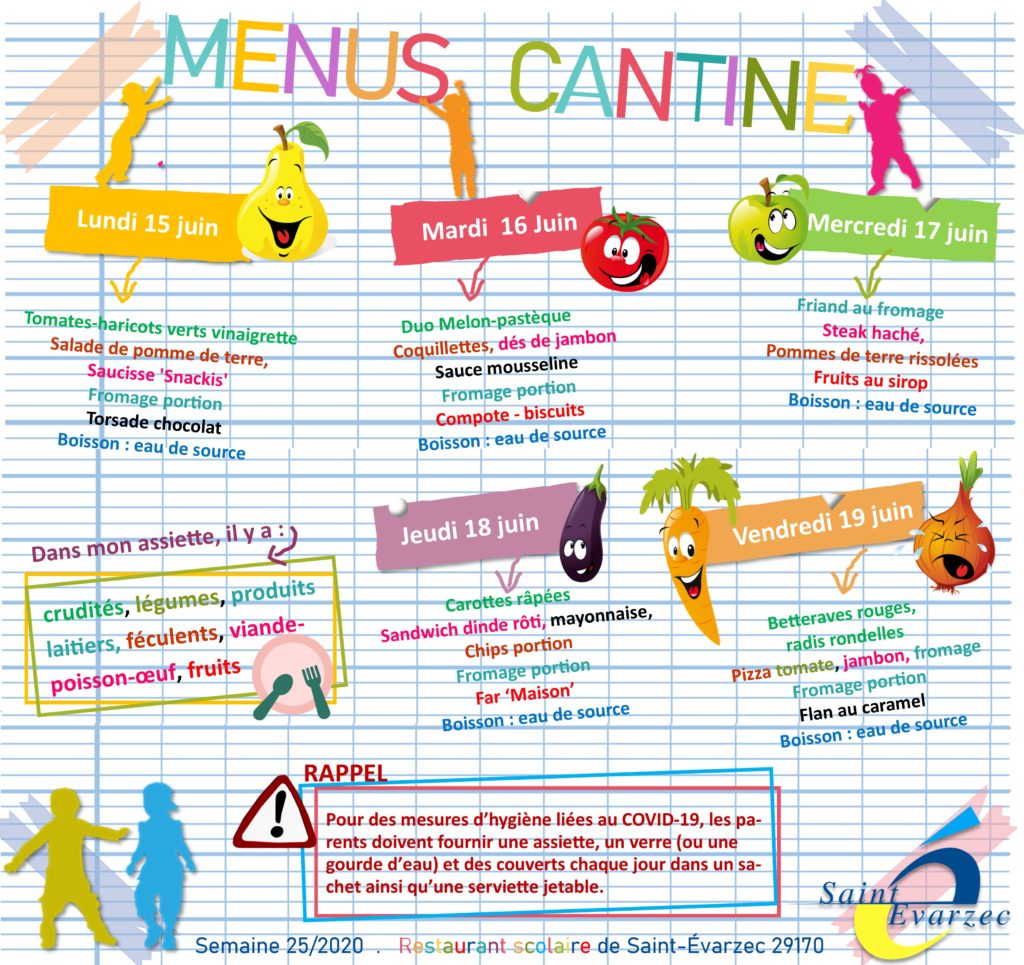 MENUS CANTINE
Lundi 15 juin
Tomates-haricots verts vinaigrette
Salade de pomme de terre,
Saucisse 'Snackis'
Fromage portion
Torsade chocolat
Boisson : eau de source
Mardi 16 Juin
Duo Melon-pastèque
Coquillettes, dés de jambon
Sauce mousseline
Fromage portion
Compote - biscuits
Boisson : eau de source
Mercredi 17 juin
Friand au fromage
Steak haché,
Pommes de terre rissolées
Fruits au sirop
Boisson : eau de source
Dans mon assiette, il y a :
crudités, légumes, produits
laitiers, féculents, viande-
poisson-œuf, fruits
Jeudi 18 juin
Carottes râpées
Sandwich dinde rôti, mayonnaise,
Chips portion
Fromage portion
Far ‘Maison’
Boisson : eau de source
Vendredi 19 juin
Betteraves rouges,
radis rondelles
Pizza tomate, jambon, fromage
Fromage portion
Flan au caramel
Boisson : eau de source
RAPPEL
Pour des mesures d’hygiène liées au COVID-19, les pa-
rents doivent fournir une assiette, un verre (ou une
gourde d’eau) et des couverts chaque jour dans un sa-
chet ainsi qu’une serviette jetable.
Saint
Evarzec
Semaine 25/2020 . Restaurant scolaire de Saint-Évarzec 29170